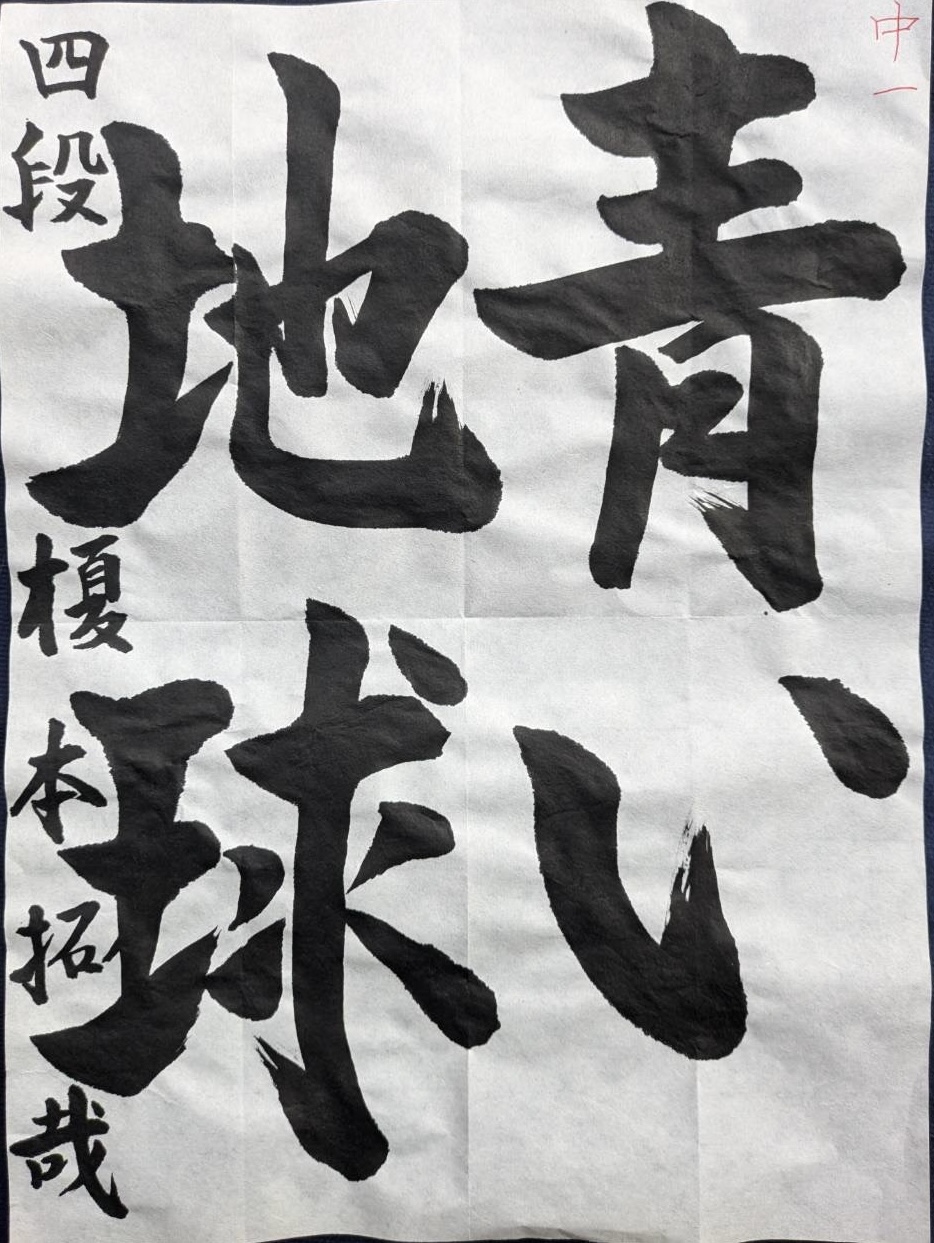 中一
青い
地球
四段 榎本拓哉